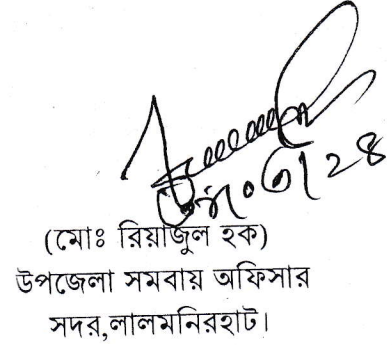 (মোঃ রিয়াজুল হক)
উপজেলা সমবায় অফিসার
সদর,লালমনিরহাট।